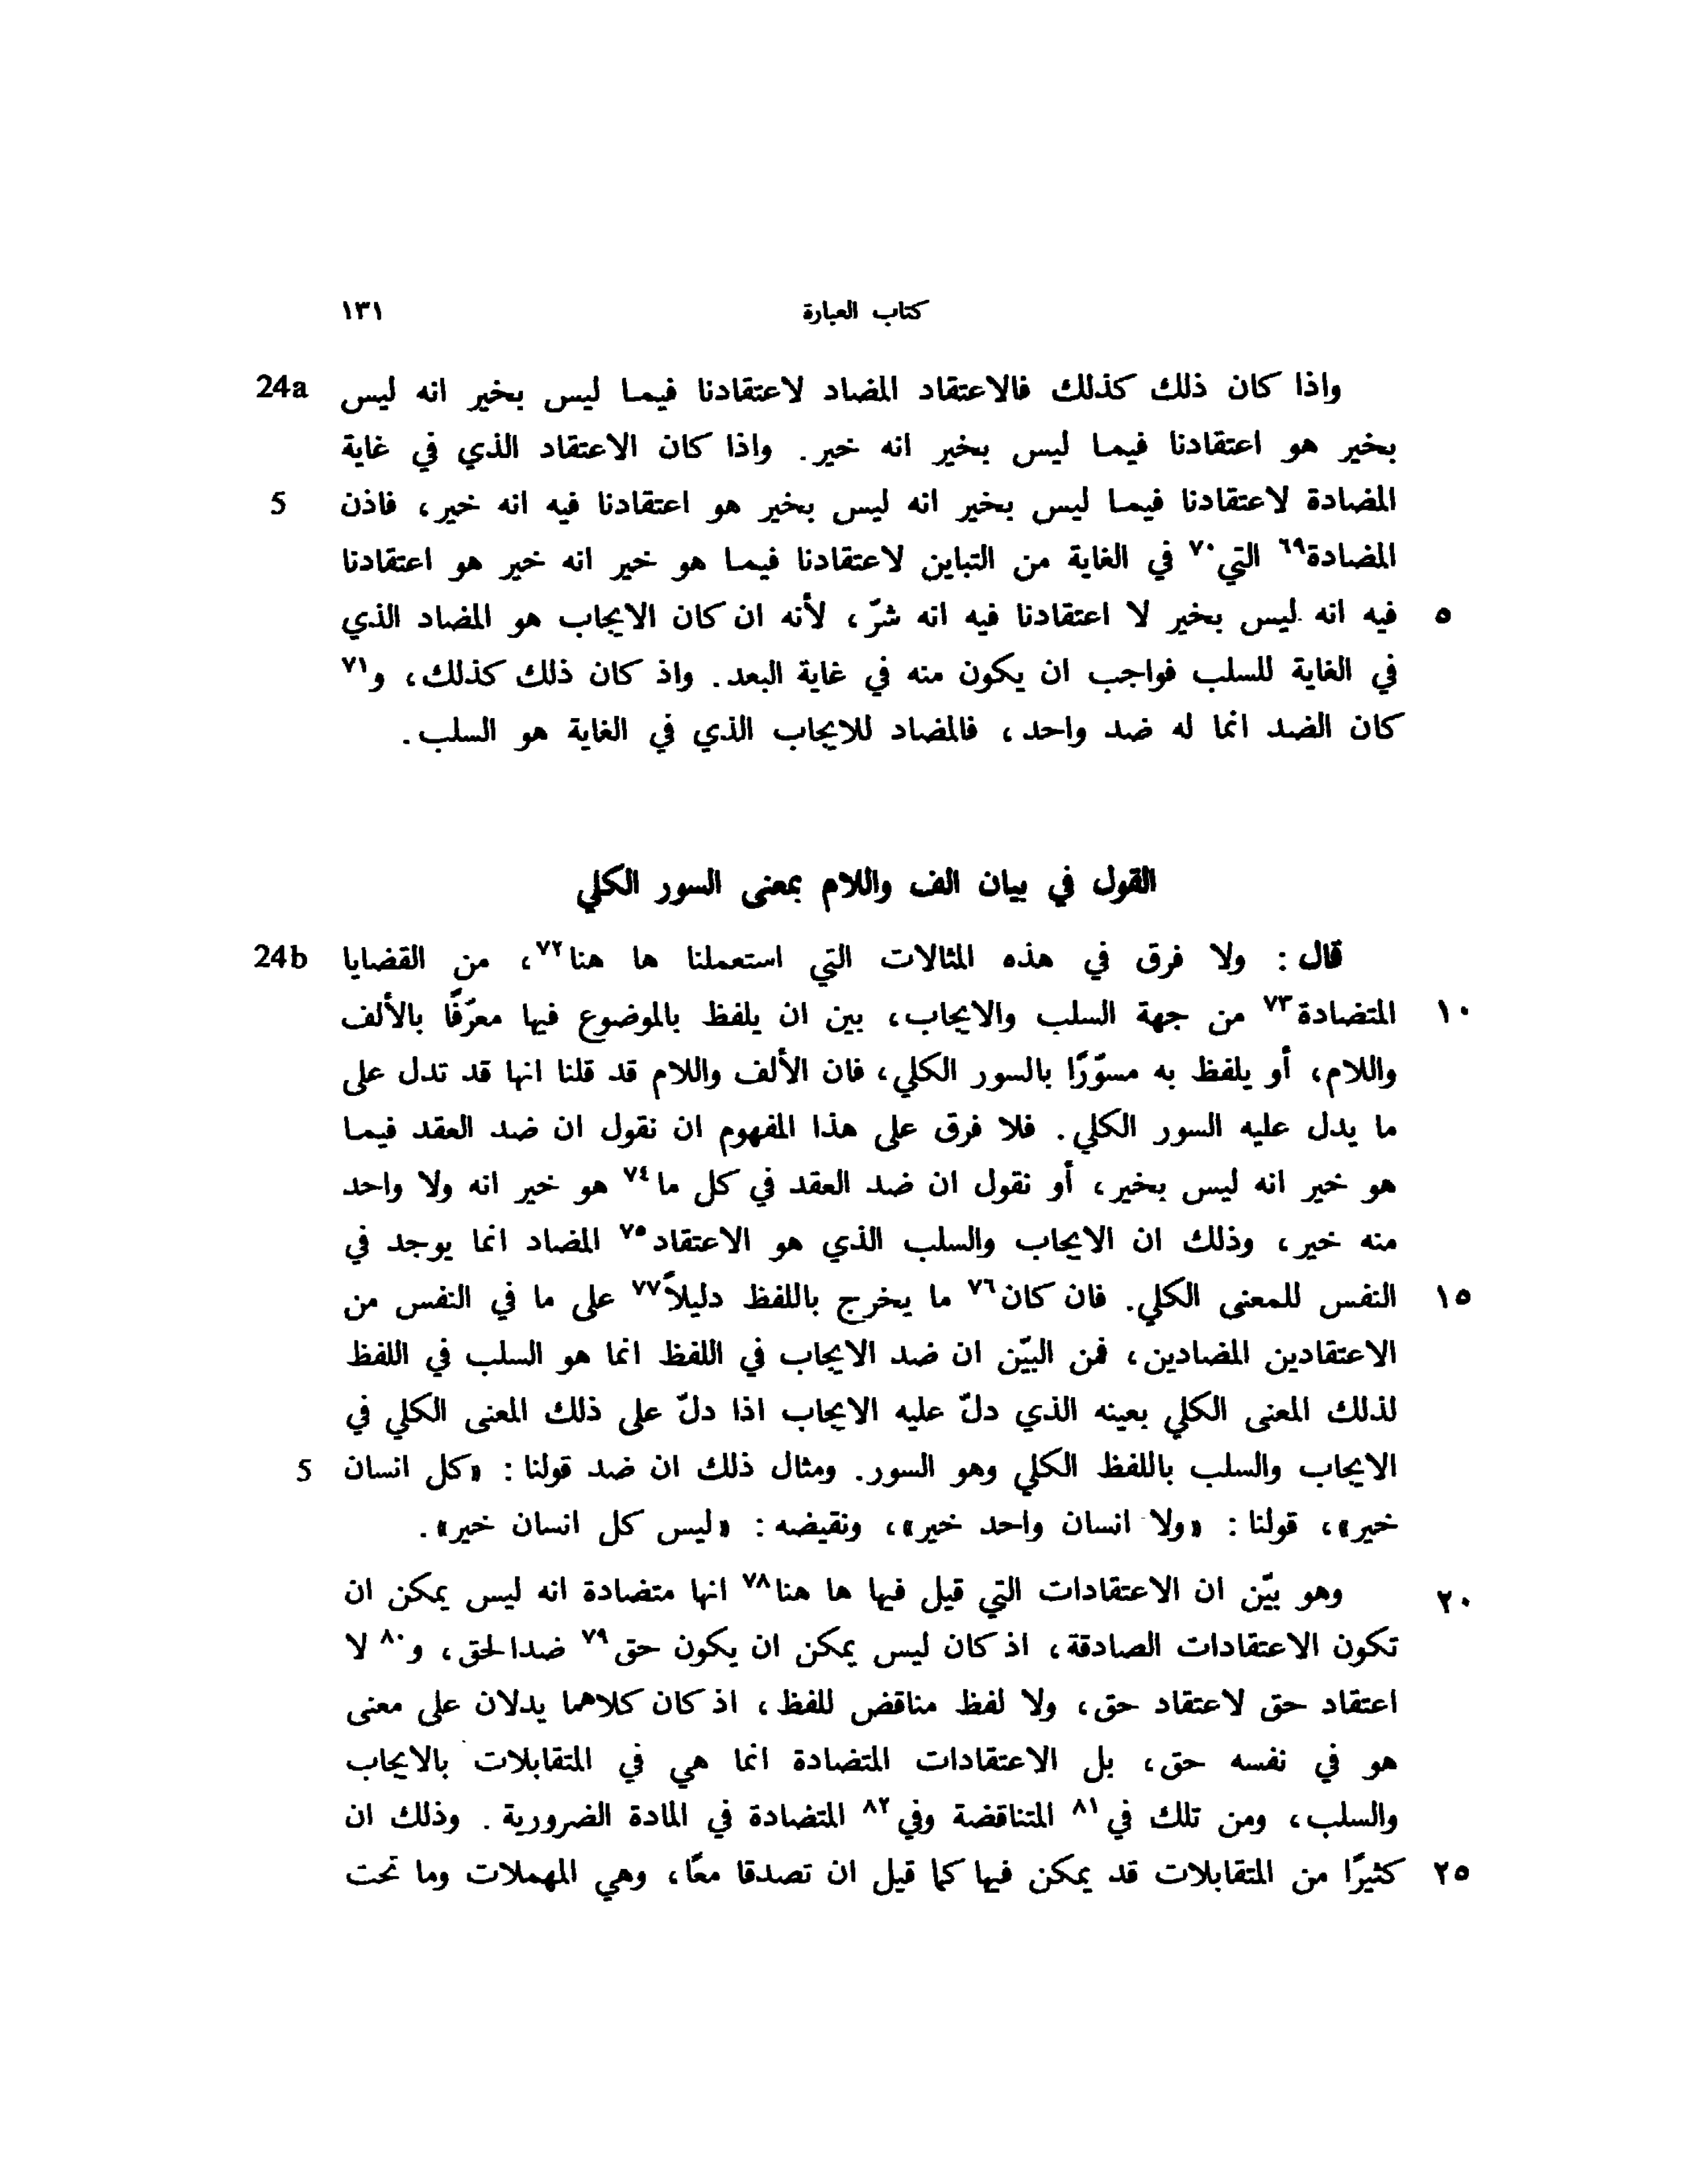 كتاب العبارة ١٣١
واذا كان ذلك كذلك فالاعتقاد المضاد لاعتقادنا فيما ليس بخير انه ليس 24a
بخير هو اعتقادنا فيما ليس بخير انه خير. واذا كان الاعتقاد الذي في غاية
المضادة لاعتقادنا فيما ليس بخير انه ليس بخير هو اعتقادنا فيه انه خير، فاذن 5
المضادة٦٩ التي٧٠ في الغاية من التباين لاعتقادنا فيما هو خير انه خير هو اعتقادنا
٥ فيه انه ليس بخير لا اعتقادنا فيه انه شرّ، لأنه ان كان الايجاب هو المضاد الذي
في الغاية للسلب فواجب ان يكون منه في غاية البعد. واذ كان ذلك كذلك، و٧١
كان الضد انما له ضد واحد، فالمضاد للايجاب الذي في الغاية هو السلب.
القول في بيان الف واللام بمعنى السور الكلي
قال : ولا فرق في هذه المثالات التي استعملنا ها هنا٧٢، من القضايا 24b
١٠ المتضادة٧٣ من جهة السلب والايجاب، بين ان يلفظ بالموضوع فيها معرّفًا بالألف
واللام، أو يلفظ به مسوّرًا بالسور الكلي، فان الألف واللام قد قلنا انها قد تدل على
ما يدل عليه السور الكلي. فلا فرق على هذا المفهوم ان نقول ان ضد العقد فيما
هو خير انه ليس بخير، أو نقول ان ضد العقد في كل ما٧٤ هو خير انه ولا واحد
منه خير، وذلك ان الايجاب والسلب الذي هو الاعتقاد٧٥ المضاد انما يوجد في
١٥ النفس للمعنى الكلي. فان كان٧٦ ما يخرج باللفظ دليلاً٧٧ على ما في النفس من
الاعتقادين المضادين، فمن البيّن ان ضد الايجاب في اللفظ انما هو السلب في اللفظ
لذلك المعنى الكلي بعينه الذي دلّ عليه الايجاب اذا دلّ على ذلك المعنى الكلي في
الايجاب والسلب باللفظ الكلي وهو السور. ومثال ذلك ان ضد قولنا : «كل انسان 5
خير»، قولنا : «ولا انسان واحد خير»، ونقيضه : «ليس كل انسان خير».
٢٠ وهو بيّن ان الاعتقادات التي قيل فيها ها هنا٧٨ انها متضادة انه ليس يمكن ان
تكون الاعتقادات الصادقة، اذ كان ليس يمكن ان يكون حق٧٩ ضدا لحق، و٨٠ لا
اعتقاد حق لاعتقاد حق، ولا لفظ مناقض للفظ، اذ كان كلاهما يدلان على معنى
هو في نفسه حق، بل الاعتقادات المتضادة انما هي في المتقابلات بالايجاب
والسلب، ومن تلك في٨١ المتناقضة وفي٨٢ المتضادة في المادة الضرورية. وذلك ان
٢٥ كثيرًا من المتقابلات قد يمكن فيها كما قيل ان تصدقا معًا، وهي المهملات وما تحت